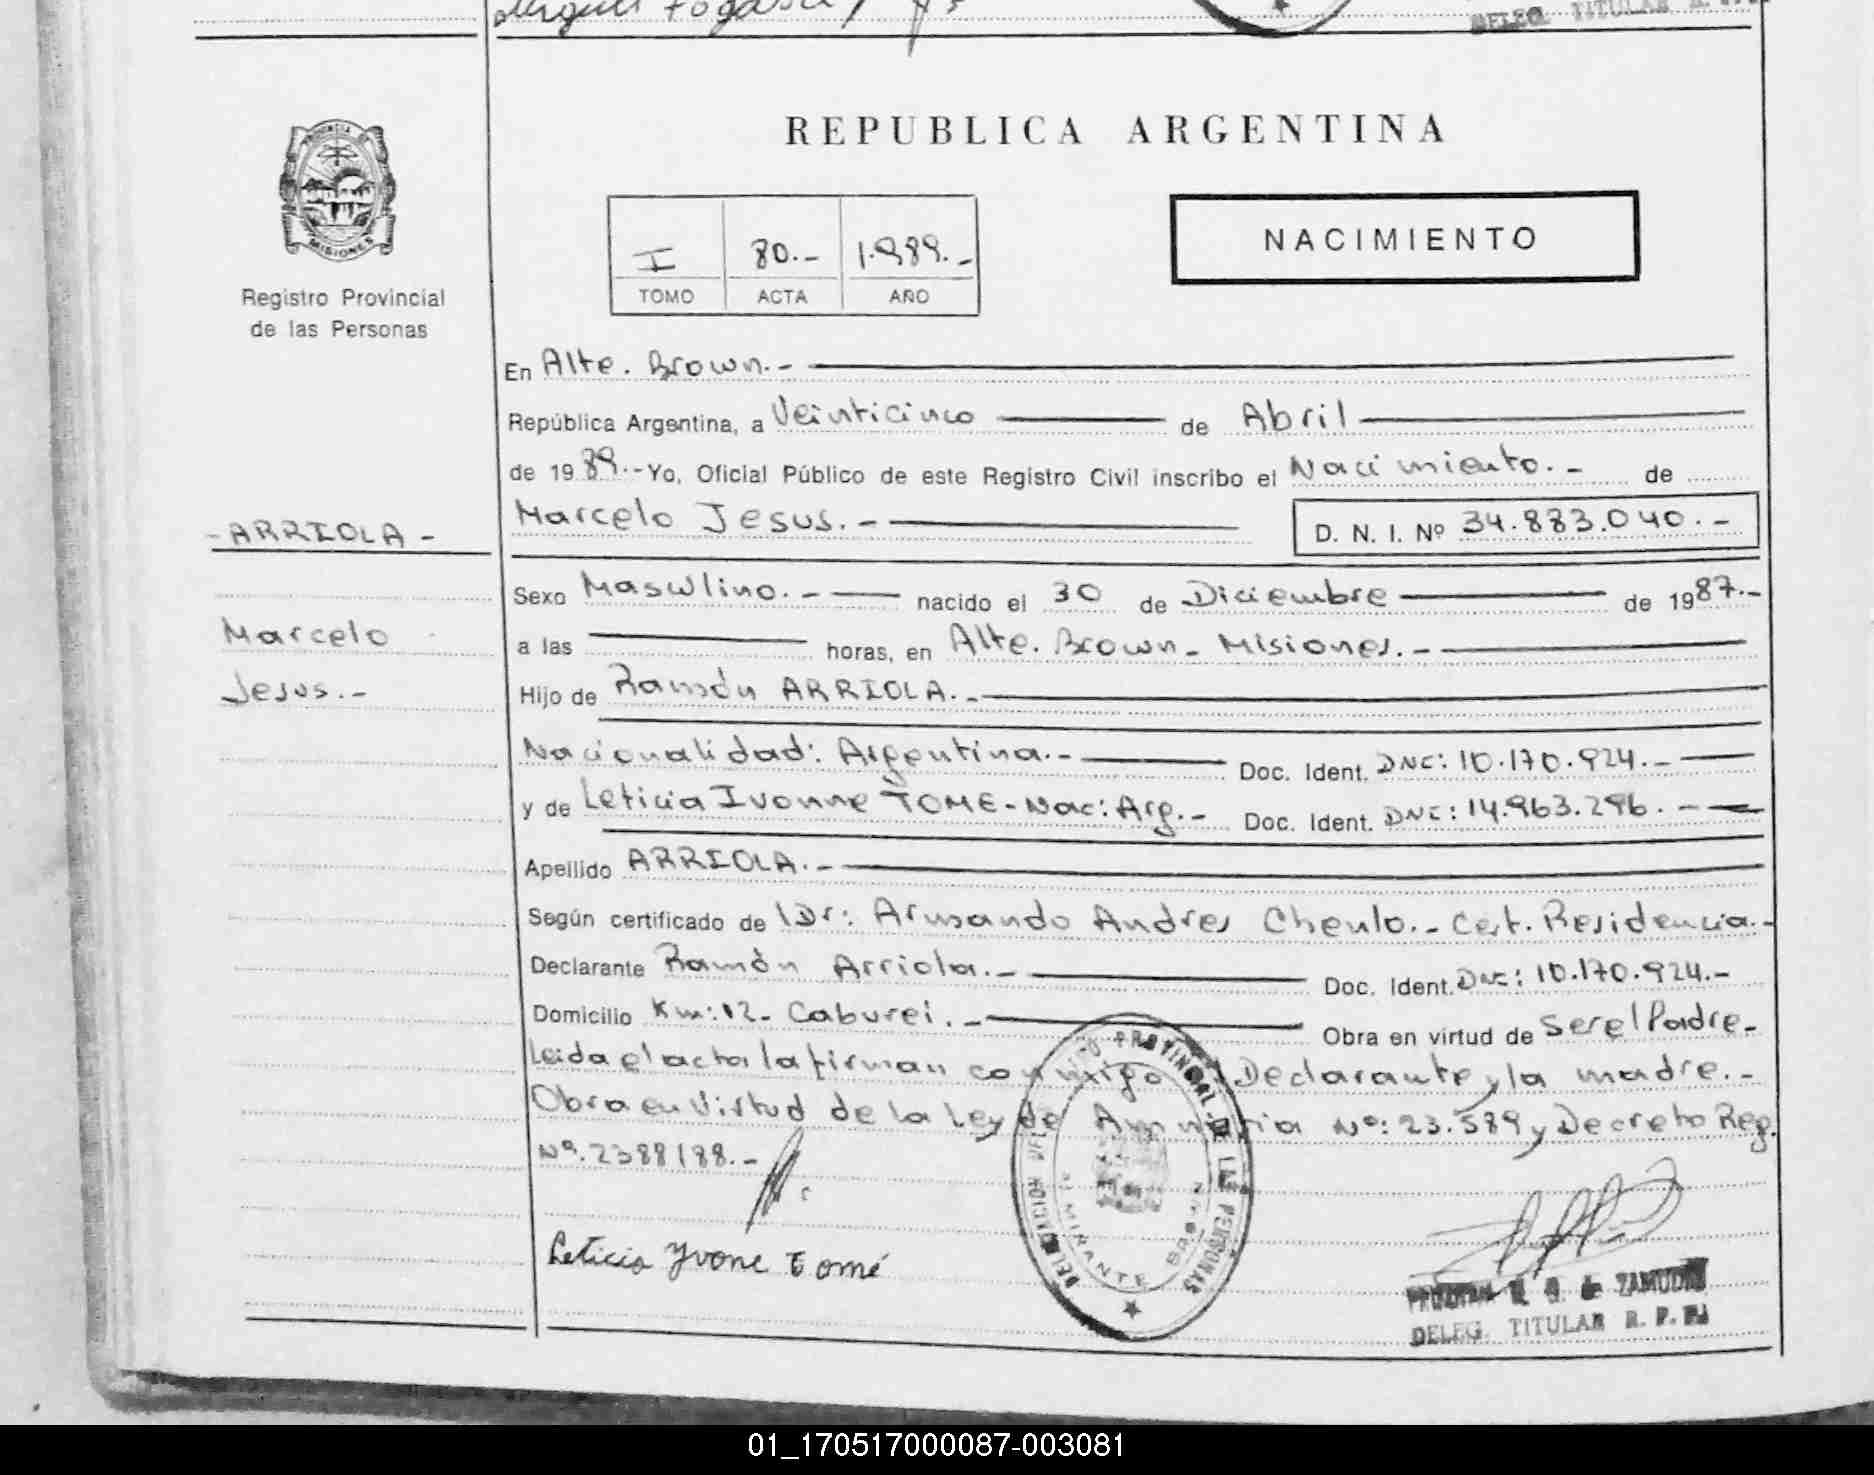 DELEG. TITULAR R.
PROVINCIA DE
MISIONES
Registro Provincial
de las Personas
REPUBLICA ARGENTINA
I 80.- 1.989.-
TOMO ACTA AÑO
NACIMIENTO
En Alte. Brown.-
República Argentina, a Veinticinco de Abril
de 1989.- Yo, Oficial Público de este Registro Civil inscribo el Nacimiento.- de
Marcelo Jesus.- D. N. I. Nº 34.883.040.-
-ARRIOLA-
Marcelo
Jesus.-
Sexo Masculino.- nacido el 30 de Diciembre de 1987.-
a las horas, en Alte. Brown- Misiones.-
Hijo de Ramón ARRIOLA.-
Nacionalidad: Argentina.- Doc. Ident. DNI: 10.170.924.-
y de Leticia Ivonne TOME- Nac: Arg.- Doc. Ident. DNI: 14.963.296.-
Apellido ARRIOLA.-
Según certificado de Dr: Armando Andres Chenlo.- Cert. Residencia.-
Declarante Ramón Arriola.- Doc. Ident. DNI: 10.170.924.-
Domicilio Km: 12- Caburei.- Obra en virtud de Ser el Padre.-
Leida el acta la firman conmigo Declarante y la madre.-
Obra en Virtud de la Ley de Amnistia Nº: 23.589 y Decreto Reg.
Nº. 2388/88.-
Leticia Yvone Tomé
PROVINCIAL DE LAS PERSONAS
ALMIRANTE BROWN
de ZAMUDIO
DELEG. TITULAR R. P. P.
01_170517000087-003081